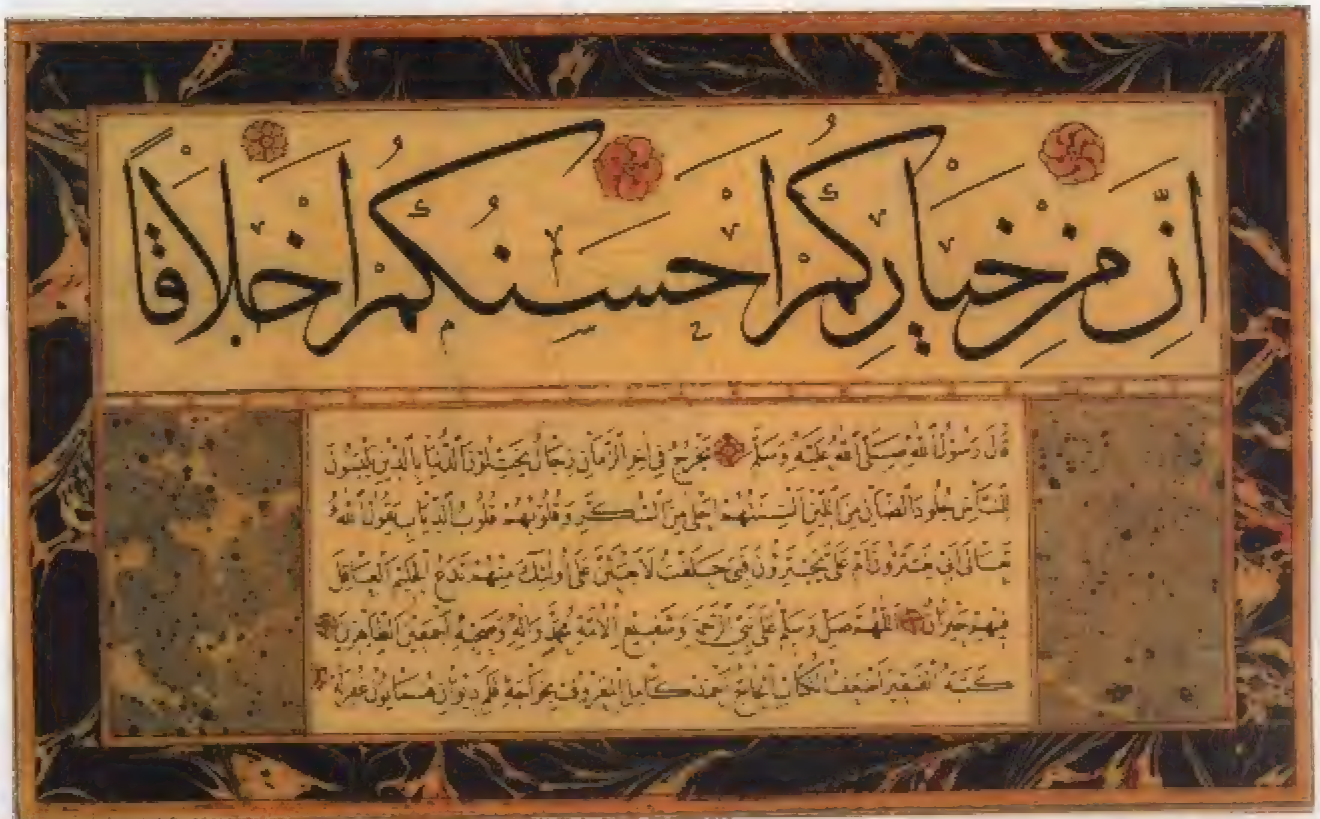 اِنَّ مِنْ خِيَارِكُمْ اَحْسَنُكُمْ اَخْلَاقًا
قَالَ رَسُولُ اللهِ صَلَّى اللهُ عَلَيْهِ وَسَلَّمَ يَخْرُجُ فِي اٰخِرِ الزَّمَانِ رِجَالٌ يَخْتِلُونَ الدُّنْيَا بِالدِّينِ يَلْبَسُونَ
لِلنَّاسِ جُلُودَ الضَّأْنِ مِنَ اللِّينِ اَلْسِنَتُهُمْ اَحْلٰى مِنَ السُّكَّرِ وَقُلُوبُهُمْ قُلُوبُ الذِّيَابِ يَقُولُ اللهُ
تَعَالٰى اَبِي يَغْتَرُّونَ اَمْ عَلَيَّ يَجْتَرِؤُنَ فَبِي حَلَفْتُ لَاَبْعَثَنَّ عَلٰى اُولٰئِكَ مِنْهُمْ تَدَعُ الْحَلِيمَ الْعَاقِلَ
فِيهِمْ حَيْرَانَ اَللّٰهُمَّ صَلِّ وَسَلِّمْ عَلٰى نَبِيِّ الرَّحْمَةِ وَشَفِيعِ الْاُمَّةِ مُحَمَّدٍ وَاٰلِهِ وَصَحْبِهِ اَجْمَعِينَ الطَّاهِرِينَ
كَتَبَهُ الْفَقِيرُ اَضْعَفُ الْكُتَّابِ الْحَاجّ اَحْمَد كَامِل الْمَعْرُوف دِيوَان هُمَايُون غُفِرَ لَهُ